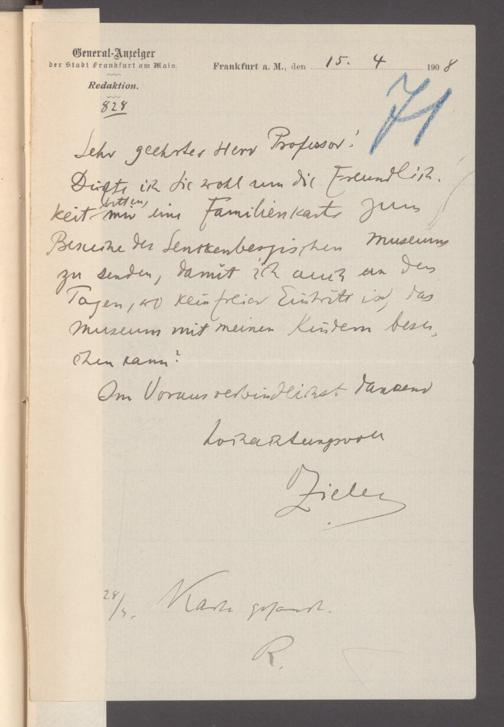 General-Anzeiger
der Stadt Frankfurt am Main.
Redaktion.
828
Frankfurt a. M., den 15. 4 1908
71
Sehr geehrter Herr Professor!
Dürfte ich Sie wohl um die Freundlich-
keit bitten, mir eine Familienkarte zum
Besuche des Senckenbergischen Museums
zu senden, damit ich auch an den
Tagen, wo kein freier Eintritt ist, das
Museum mit meinen Kindern besu-
chen kann?
Im Voraus verbindlichst dankend
hochachtungsvoll
Zieler
28/4. Karte gesandt.
R.